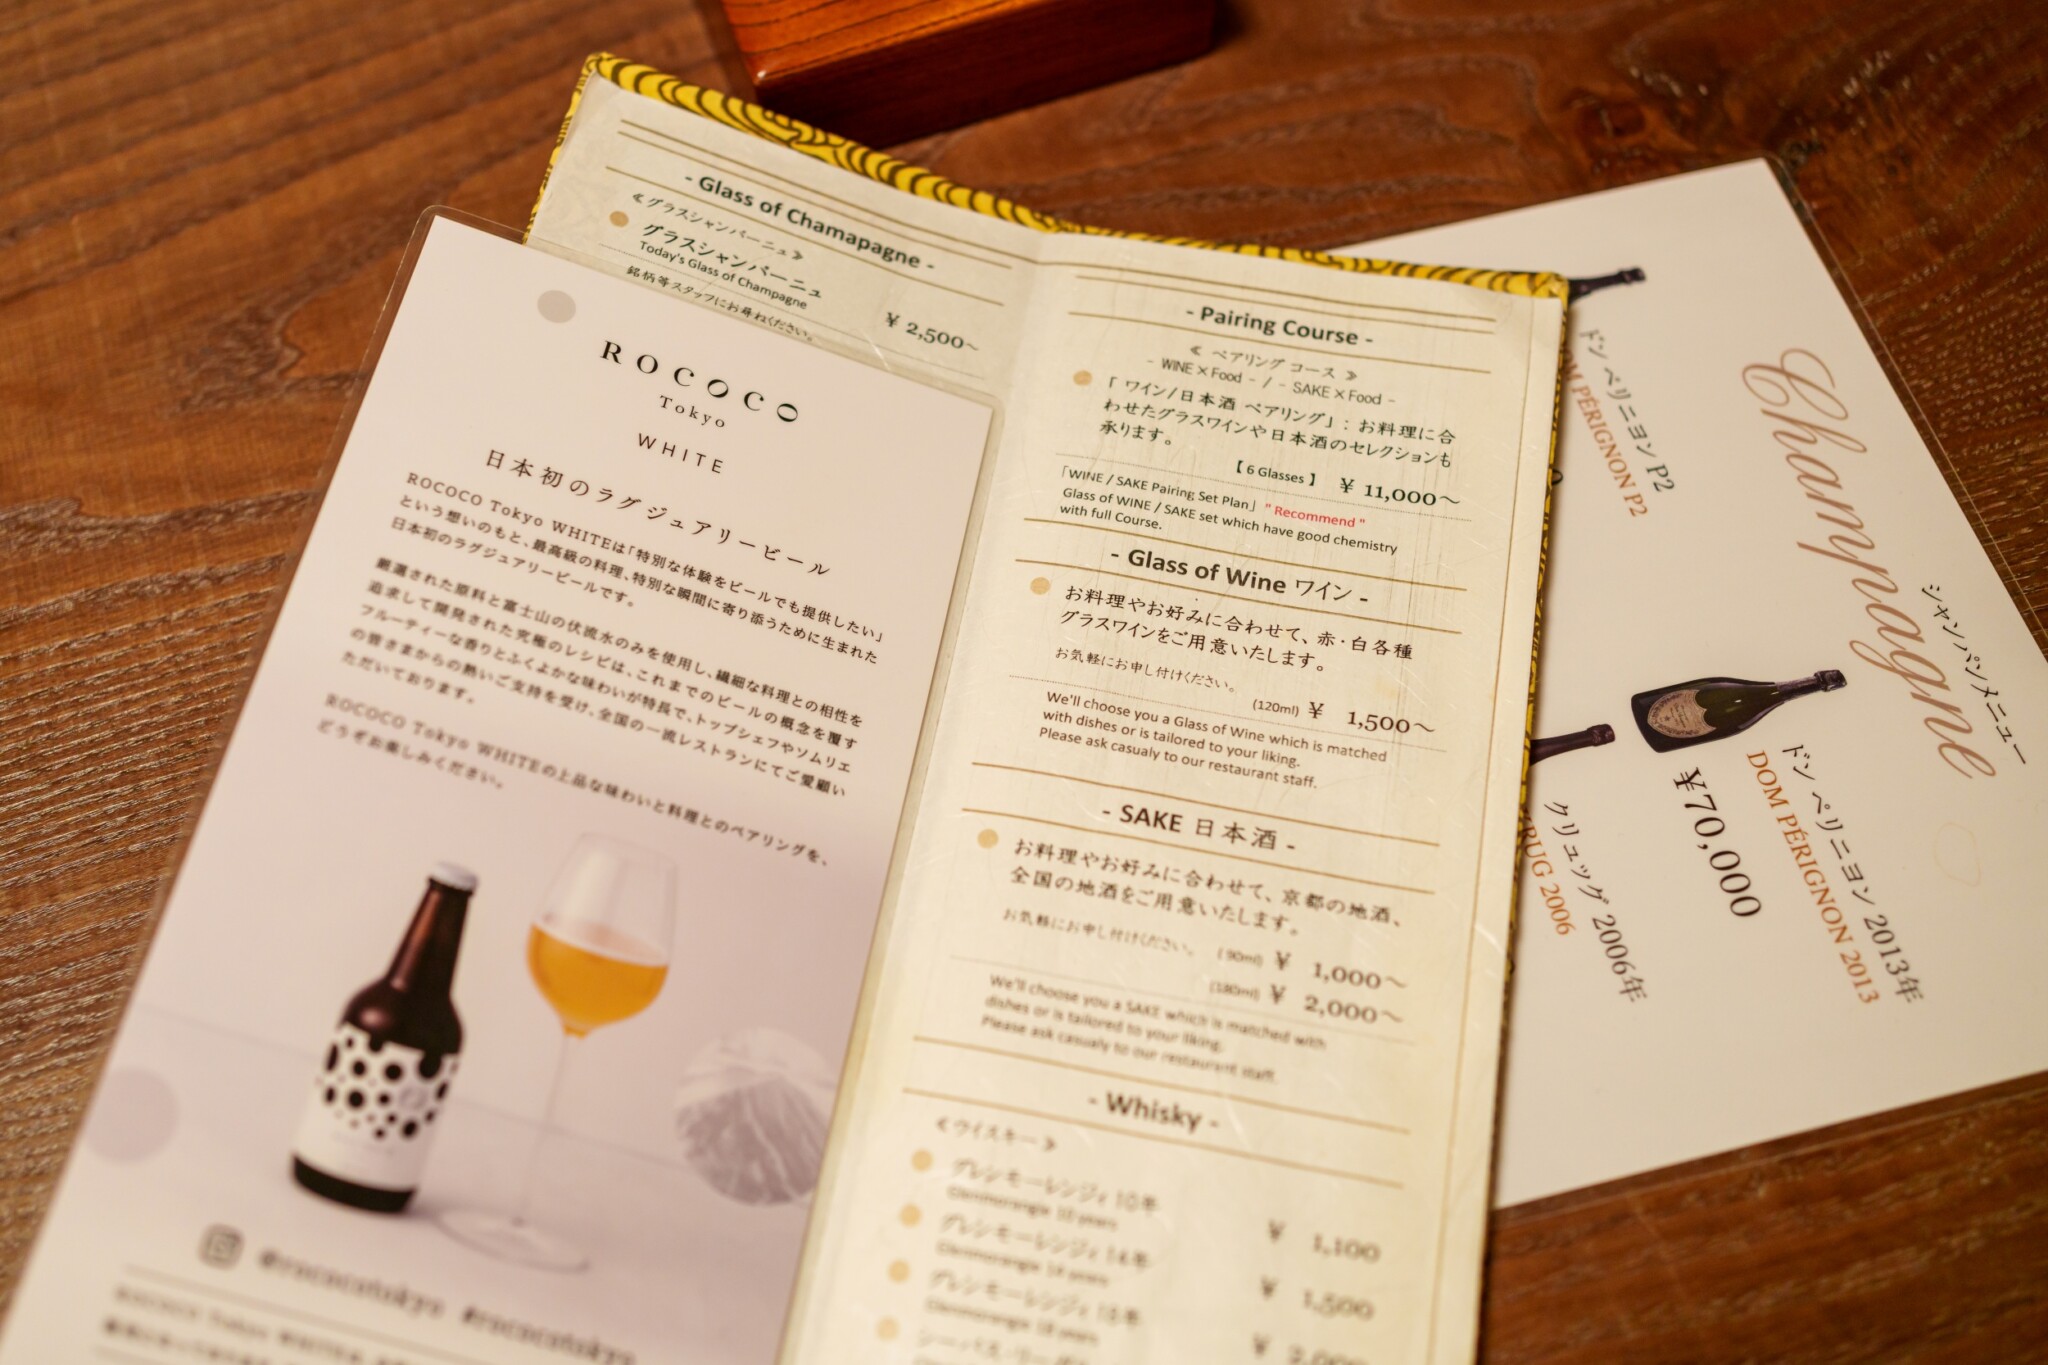 ROCOCO
Tokyo
WHITE
日本初のラグジュアリービール
ROCOCO Tokyo WHITEは「特別な体験をビールでも提供したい」
という想いのもと、最高級の料理、特別な瞬間に寄り添うために生まれた
日本初のラグジュアリービールです。
厳選された原料と富士山の伏流水のみを使用し、繊細な料理との相性を
追求して開発された究極のレシピは、これまでのビールの概念を覆す
フルーティーな香りとふくよかな味わいが特長で、トップシェフやソムリエ
の皆さまからの熱いご支持を受け、全国の一流レストランにてご愛顧い
ただいております。
ROCOCO Tokyo WHITEの上品な味わいと料理とのペアリングを、
どうぞお楽しみください。
@rococotokyo #rococotokyo
ROCOCO Tokyo WHITE
- Glass of Chamapagne -
≪グラスシャンパーニュ≫
グラスシャンパーニュ
Today's Glass of Champagne
銘柄等スタッフにお尋ねください。
¥ 2,500～
- Pairing Course -
≪ ペアリング コース ≫
- WINE×Food - / - SAKE×Food -
「 ワイン/日本酒 ペアリング」：お料理に合
わせたグラスワインや日本酒のセレクションも
承ります。
【 6 Glasses 】 ¥ 11,000～
「WINE / SAKE Pairing Set Plan」 " Recommend "
Glass of WINE / SAKE set which have good chemistry
with full Course.
- Glass of Wine ワイン -
お料理やお好みに合わせて、赤・白各種
グラスワインをご用意いたします。
お気軽にお申し付けください。
(120ml) ¥ 1,500～
We'll choose you a Glass of Wine which is matched
with dishes or is tailored to your liking.
Please ask casualy to our restaurant staff.
- SAKE 日本酒 -
お料理やお好みに合わせて、京都の地酒、
全国の地酒をご用意いたします。
お気軽にお申し付けください。
( 90ml) ¥ 1,000～
(180ml) ¥ 2,000～
We'll choose you a SAKE which is matched with
dishes or is tailored to your liking.
Please ask casualy to our restaurant staff.
- Whisky -
≪ウイスキー≫
グレンモーレンジィ 10年
Glenmorangie 10 years
¥ 1,100
グレンモーレンジィ 14年
Glenmorangie 14 years
¥ 1,500
グレンモーレンジィ 18年
Glenmorangie 18 years
Champagne
シャンパンメニュー
ドン ペリニヨン P2
DOM PÉRIGNON P2
ドン ペリニヨン 2013年
DOM PÉRIGNON 2013
¥70,000
クリュッグ 2006年
KRUG 2006